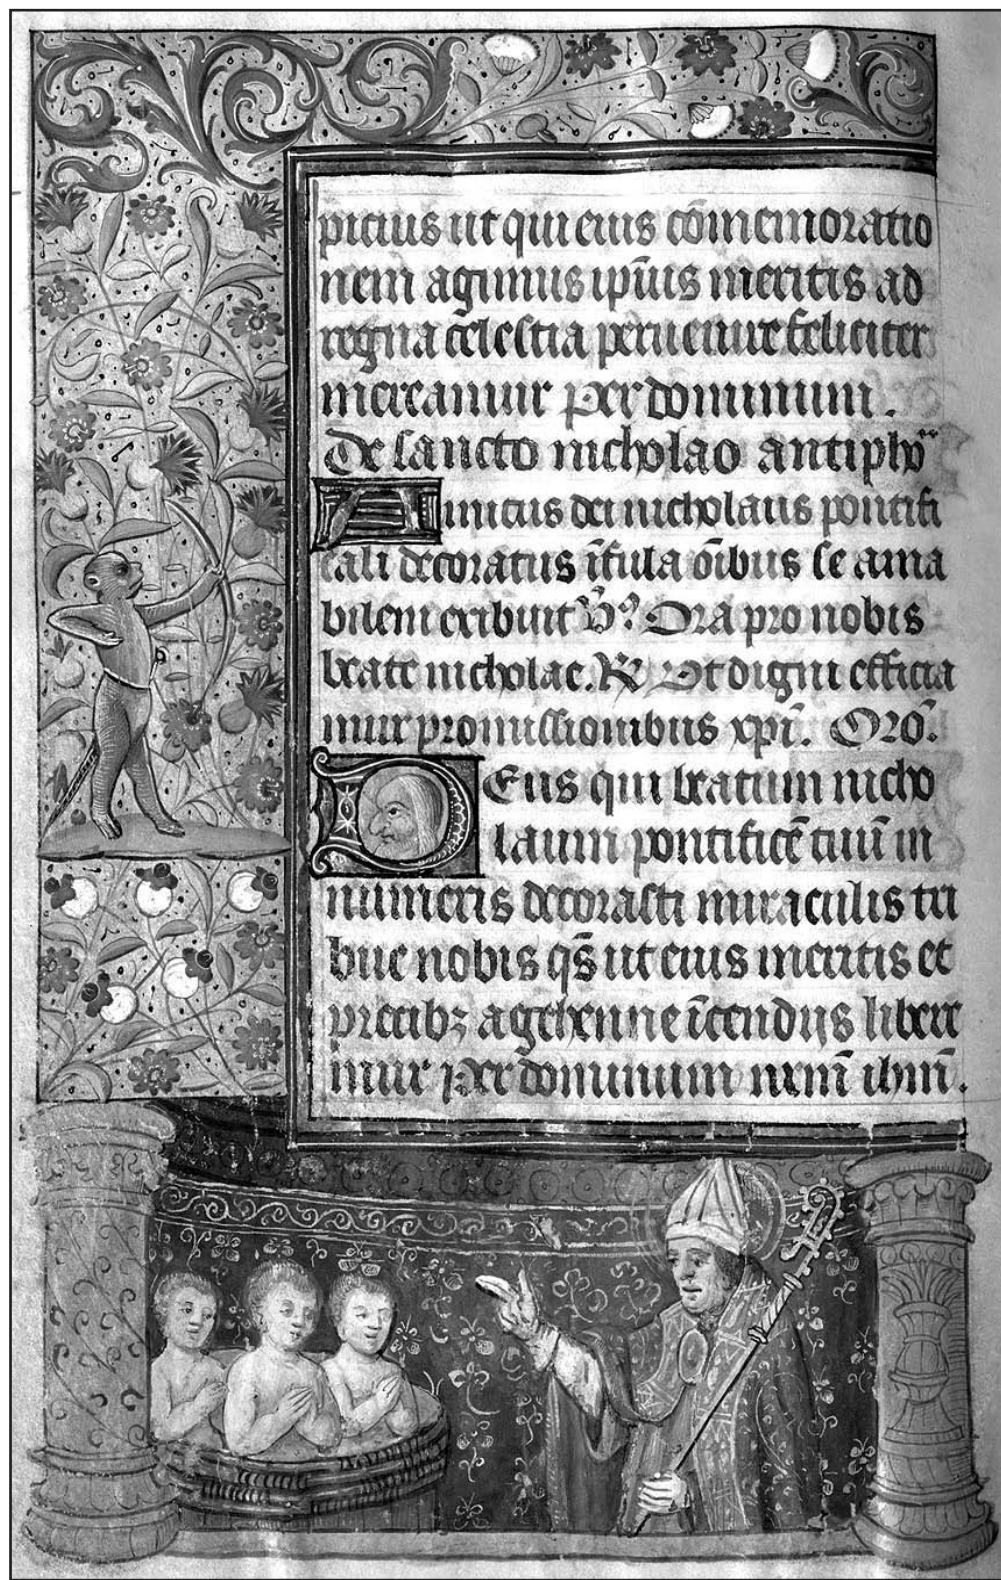 picius ut qui eius cōmemoratio
nem agimus ip̄ius meritis ad
regna cēlestia peruenire feliciter
mereamur Per dominum.
De sancto nicholao antipho
Amicus dei nicholaus pontifi
cali decoratus īfula oībus se ama
bilem exibuit V̄s Ora pro nobis
beate nicholae. R̄ Ut digni efficia
mur promissionibus xp̄i. Orō.
Deus qui beatum nicho
laum pontificē tuū in
numeris decorasti miraculis tri
bue nobis qs̄ ut eius meritis et
precibꝫ a gehenne īcendijs libere
mur Per dominum nr̄m ihm̄.